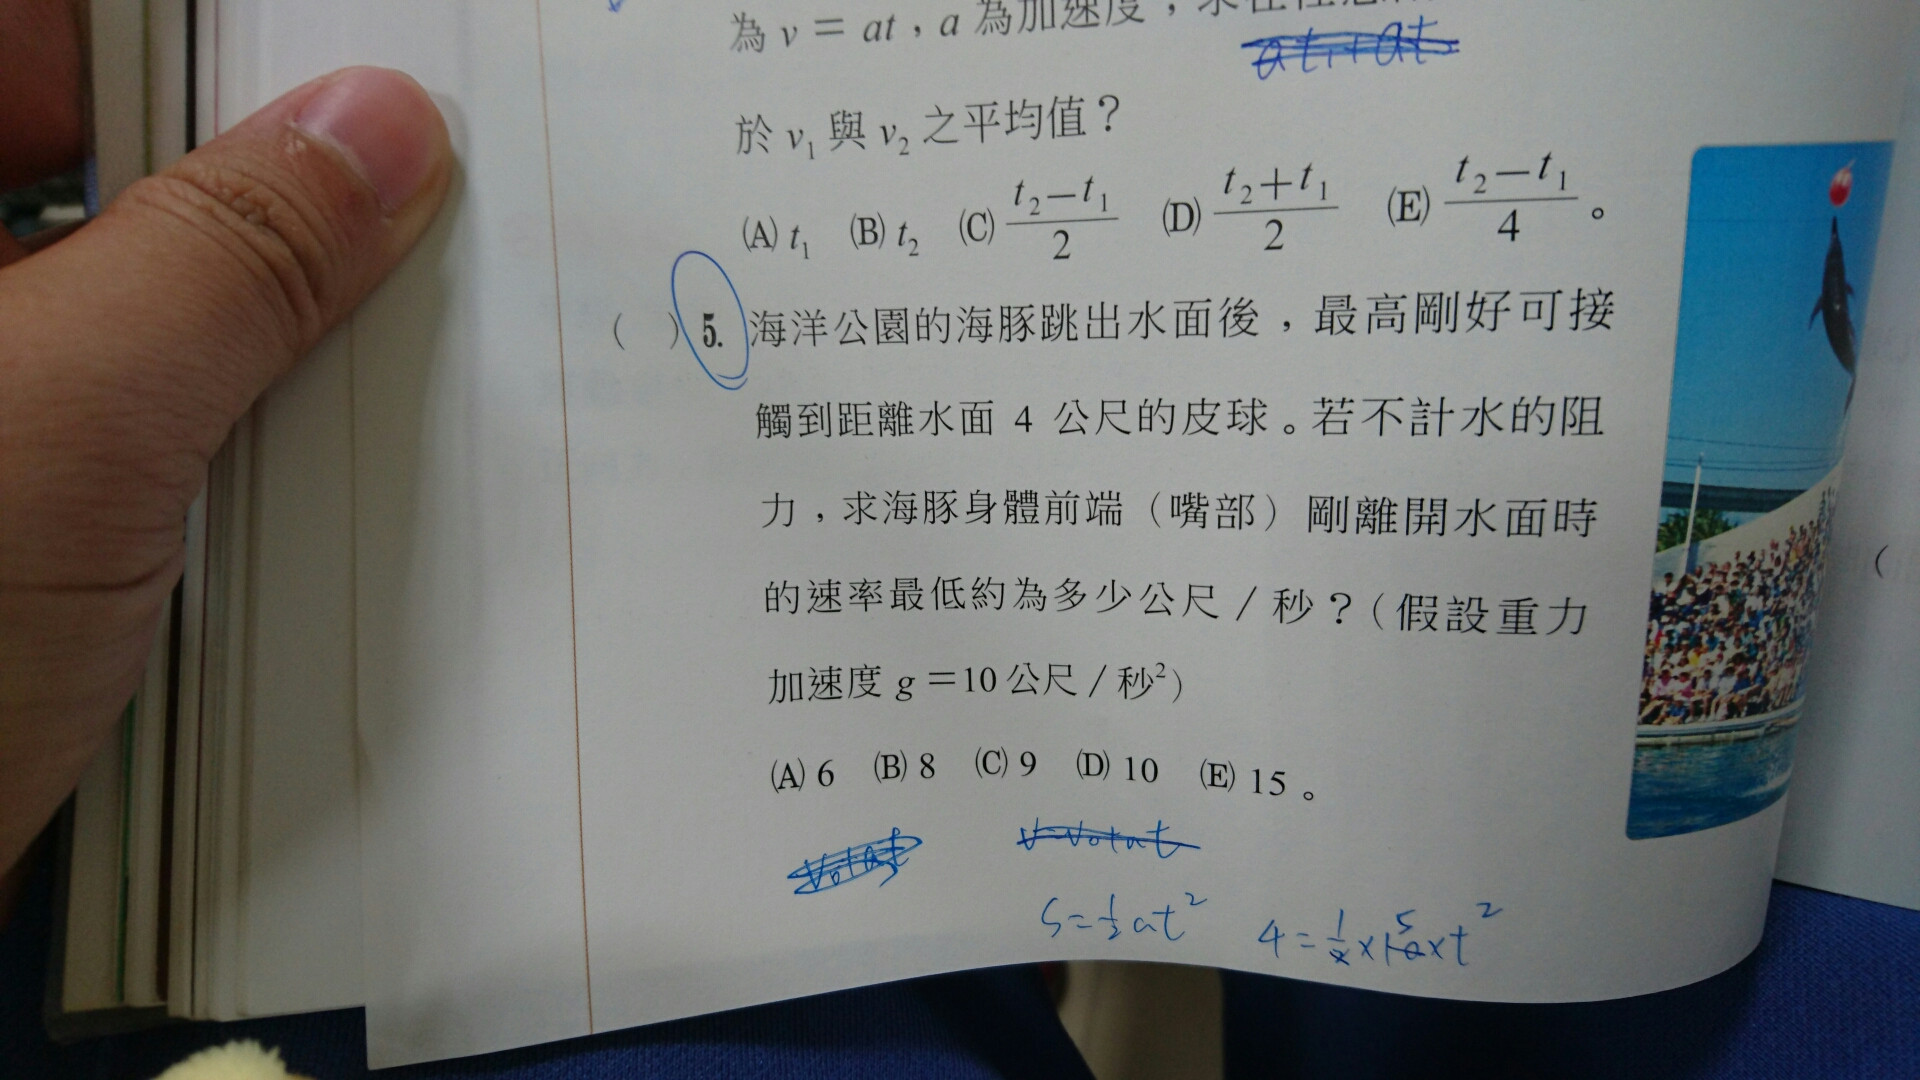 為 v = at,a 為加速度,求在
at₁+at
於 v₁ 與 v₂ 之平均值?
(A) t₁ (B) t₂ (C) (t₂−t₁)/2 (D) (t₂+t₁)/2 (E) (t₂−t₁)/4 。
( ) 5. 海洋公園的海豚跳出水面後,最高剛好可接
觸到距離水面 4 公尺的皮球。若不計水的阻
力,求海豚身體前端(嘴部)剛離開水面時
的速率最低約為多少公尺/秒?(假設重力
加速度 g =10 公尺/秒²)
(A) 6 (B) 8 (C) 9 (D) 10 (E) 15 。
V=V₀+at
S=½at² 4=½×10 5×t²
(